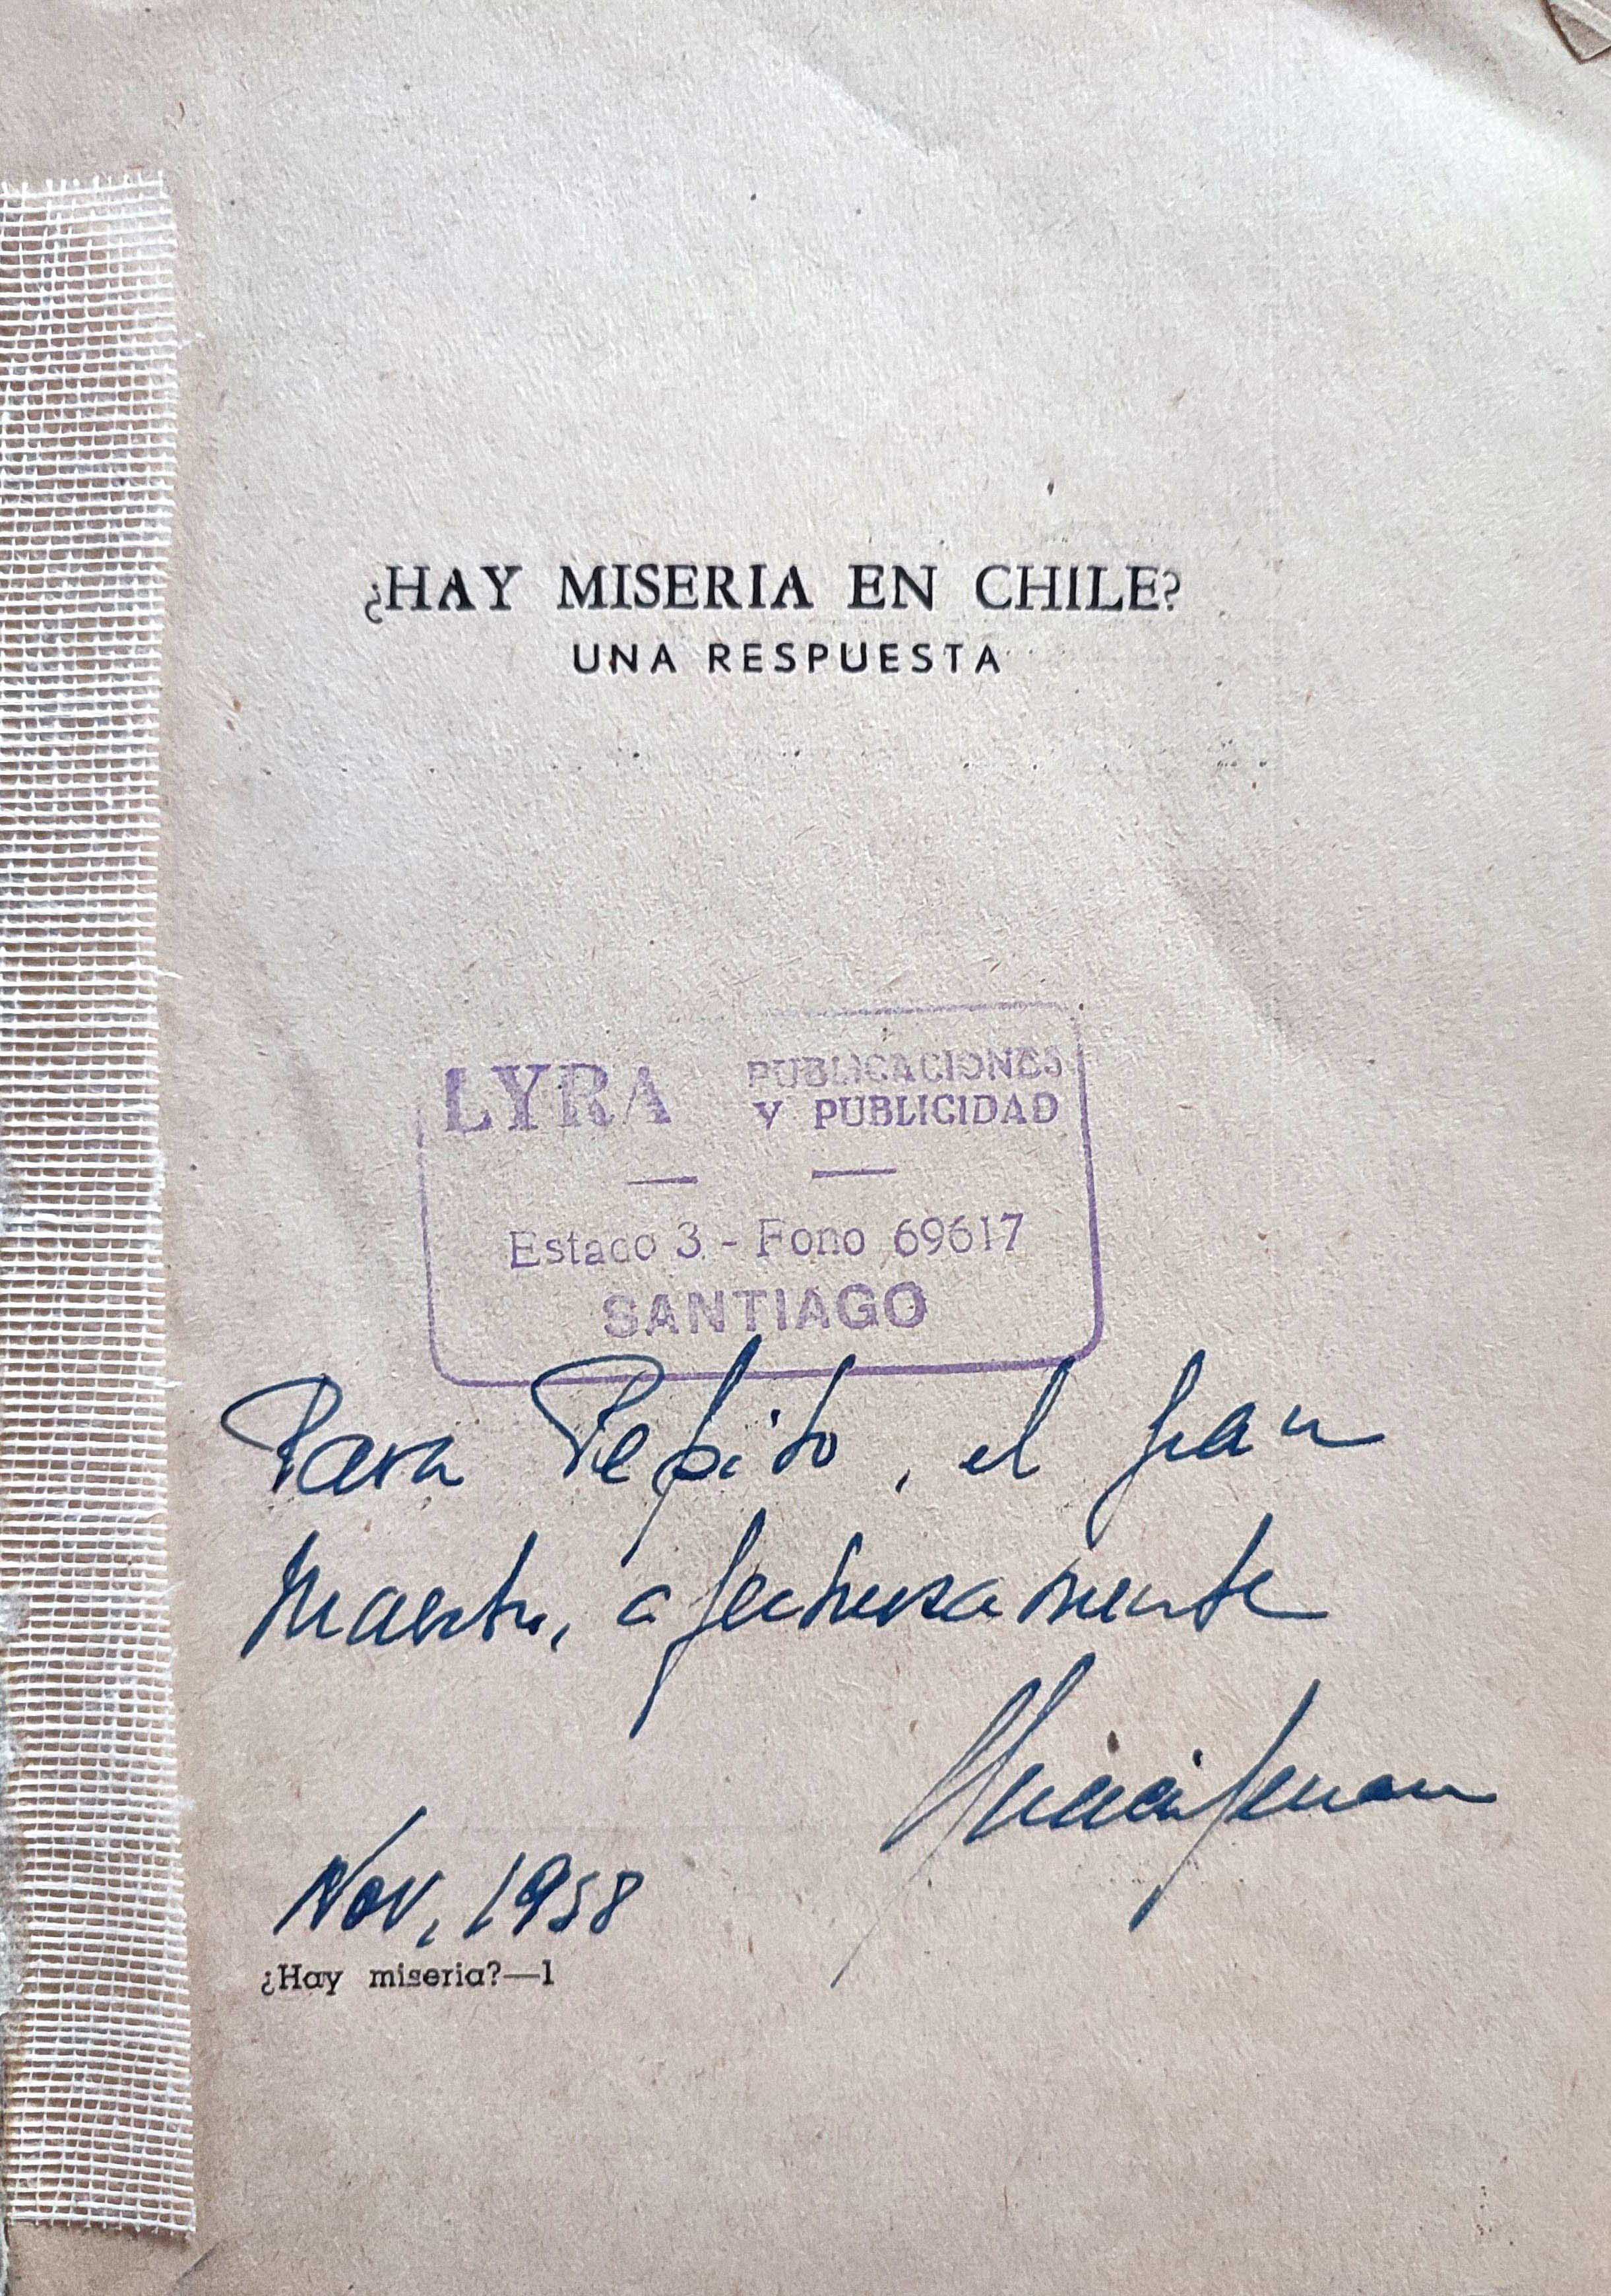 ¿HAY MISERIA EN CHILE?
UNA RESPUESTA
LYRA PUBLICACIONES
Y PUBLICIDAD
Estado 3 - Fono 69617
SANTIAGO
Para Pepito, el gran
Maestro, afectuosamente
Nov, 1958
¿Hay miseria?—1